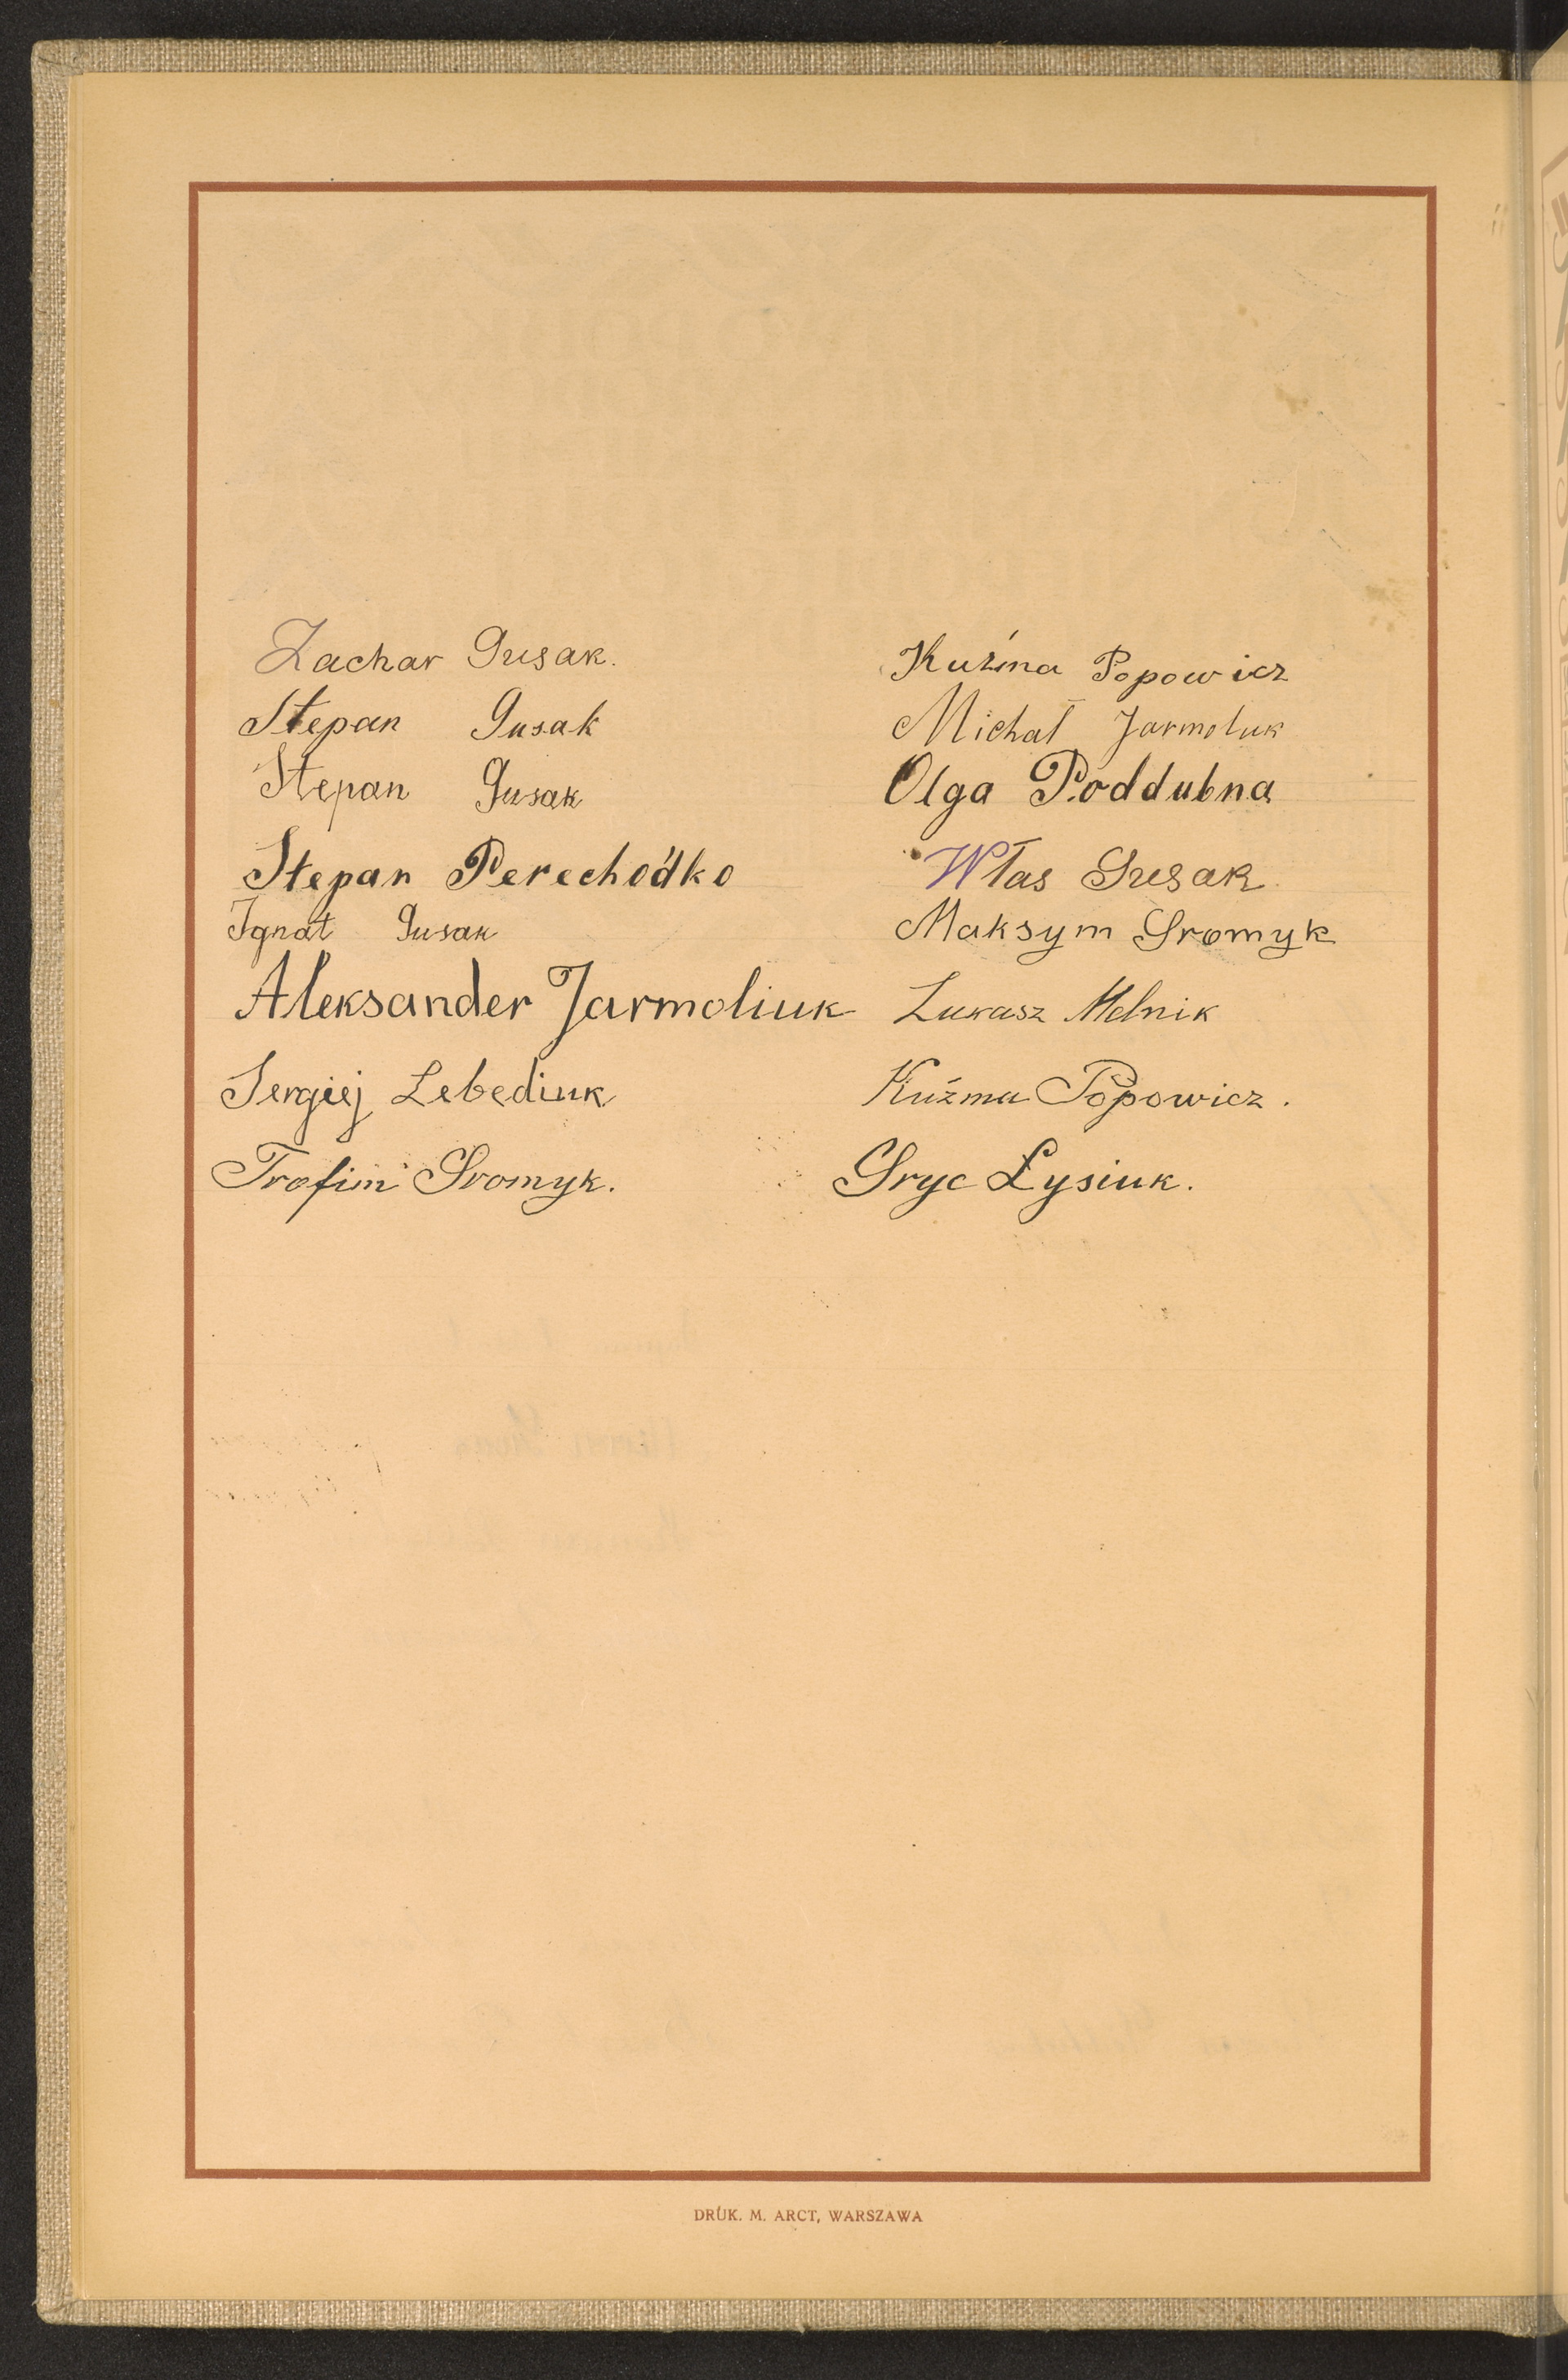 Zachar Gusak.
Stepan Gusak
Stepan Gusak
Stepan Perechodko
Ignat Gusak
Aleksander Jarmoliuk
Sergiej Lebediuk
Trofim Gromyk.
Kuźma Popowicz
Michał Jarmoluk
Olga Poddubna
Włas Gusak
Maksym Gromyk
Lukasz Melnik
Kuźma Popowicz.
Gryc Łysiuk.
DRUK. M. ARCT, WARSZAWA